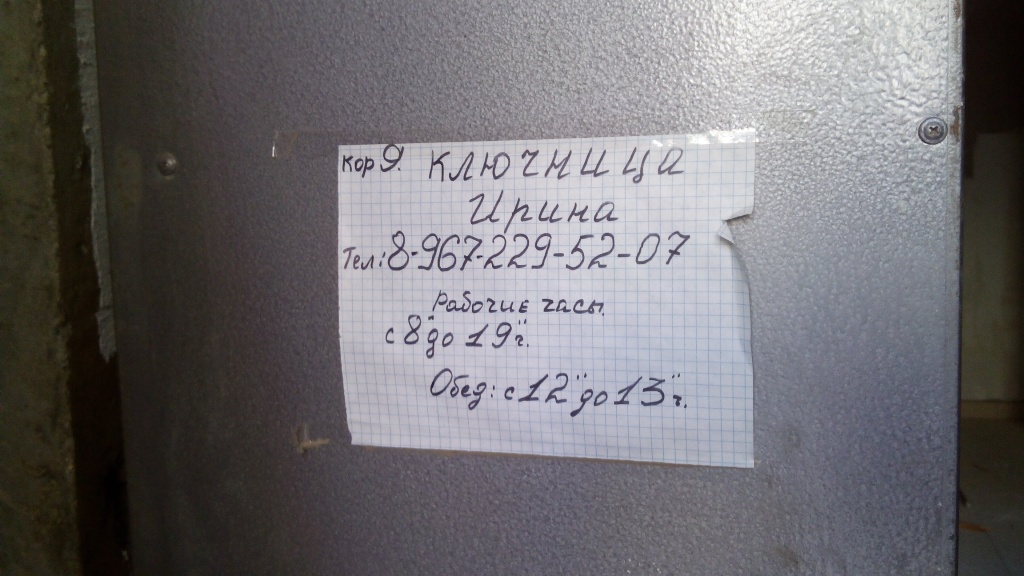 кор 9. ключница
Ирина
Тел: 8-967-229-52-07
Рабочие часы.
с 8" до 19" ч.
Обед: с 12" до 13" ч.